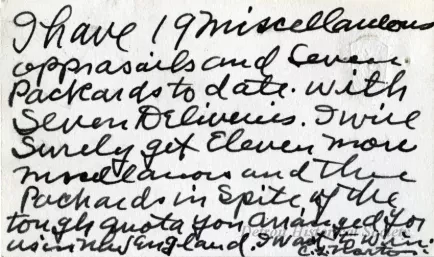 I have 19 miscellaneous
apprasails and Seven
Packards to date. with
Seven Deliveries. I will
Surely get Eleven more
miscellanous and three
Packards in Spite of the
tough quota you arranged for
us in new England. I want to win.